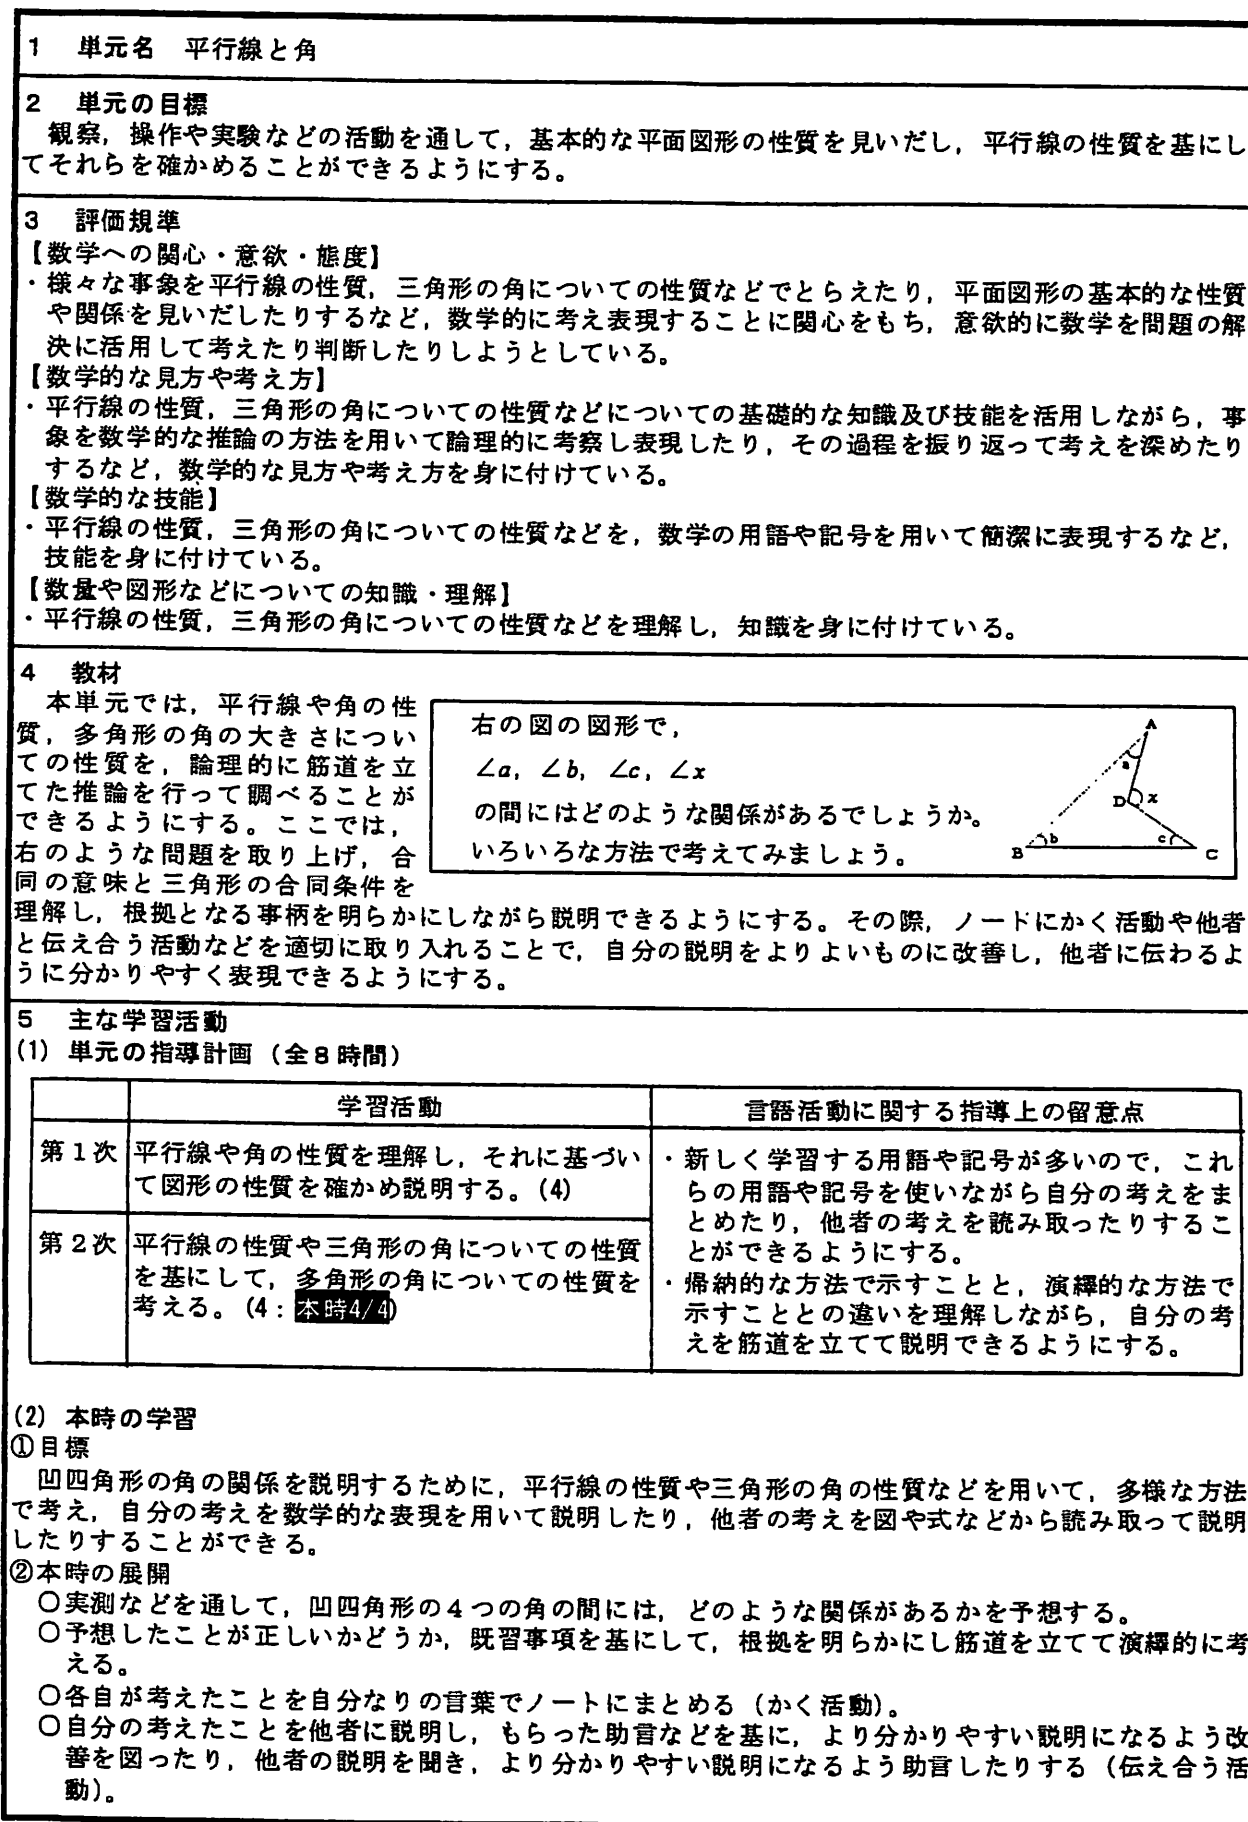 1 単元名 平行線と角
2 単元の目標
観察，操作や実験などの活動を通して，基本的な平面図形の性質を見いだし，平行線の性質を基にし
てそれらを確かめることができるようにする。
3 評価規準
【数学への関心・意欲・態度】
・様々な事象を平行線の性質，三角形の角についての性質などでとらえたり，平面図形の基本的な性質
や関係を見いだしたりするなど，数学的に考え表現することに関心をもち，意欲的に数学を問題の解
決に活用して考えたり判断したりしようとしている。
【数学的な見方や考え方】
・平行線の性質，三角形の角についての性質などについての基礎的な知識及び技能を活用しながら，事
象を数学的な推論の方法を用いて論理的に考察し表現したり，その過程を振り返って考えを深めたり
するなど，数学的な見方や考え方を身に付けている。
【数学的な技能】
・平行線の性質，三角形の角についての性質などを，数学の用語や記号を用いて簡潔に表現するなど，
技能を身に付けている。
【数量や図形などについての知識・理解】
・平行線の性質，三角形の角についての性質などを理解し，知識を身に付けている。
4 教材
本単元では，平行線や角の性
質，多角形の角の大きさについ
ての性質を，論理的に筋道を立
てた推論を行って調べることが
できるようにする。ここでは，
右のような問題を取り上げ，合
同の意味と三角形の合同条件を
理解し，根拠となる事柄を明らかにしながら説明できるようにする。その際，ノードにかく活動や他者
と伝え合う活動などを適切に取り入れることで，自分の説明をよりよいものに改善し，他者に伝わるよ
うに分かりやすく表現できるようにする。
右の図の図形で，
∠a，∠b，∠c，∠x
の間にはどのような関係があるでしょうか。
いろいろな方法で考えてみましょう。
A
a
D x
B b c C
5 主な学習活動
(1) 単元の指導計画（全8時間）
学習活動
言語活動に関する指導上の留意点
第1次
平行線や角の性質を理解し，それに基づい
て図形の性質を確かめ説明する。(4)
第2次
平行線の性質や三角形の角についての性質
を基にして，多角形の角についての性質を
考える。(4：本時4/4)
・新しく学習する用語や記号が多いので，これ
らの用語や記号を使いながら自分の考えをま
とめたり，他者の考えを読み取ったりするこ
とができるようにする。
・帰納的な方法で示すことと，演繹的な方法で
示すこととの違いを理解しながら，自分の考
えを筋道を立てて説明できるようにする。
(2) 本時の学習
①目標
凹四角形の角の関係を説明するために，平行線の性質や三角形の角の性質などを用いて，多様な方法
で考え，自分の考えを数学的な表現を用いて説明したり，他者の考えを図や式などから読み取って説明
したりすることができる。
②本時の展開
○実測などを通して，凹四角形の4つの角の間には，どのような関係があるかを予想する。
○予想したことが正しいかどうか，既習事項を基にして，根拠を明らかにし筋道を立てて演繹的に考
える。
○各自が考えたことを自分なりの言葉でノートにまとめる（かく活動）。
○自分の考えたことを他者に説明し，もらった助言などを基に，より分かりやすい説明になるよう改
善を図ったり，他者の説明を聞き，より分かりやすい説明になるよう助言したりする（伝え合う活
動）。